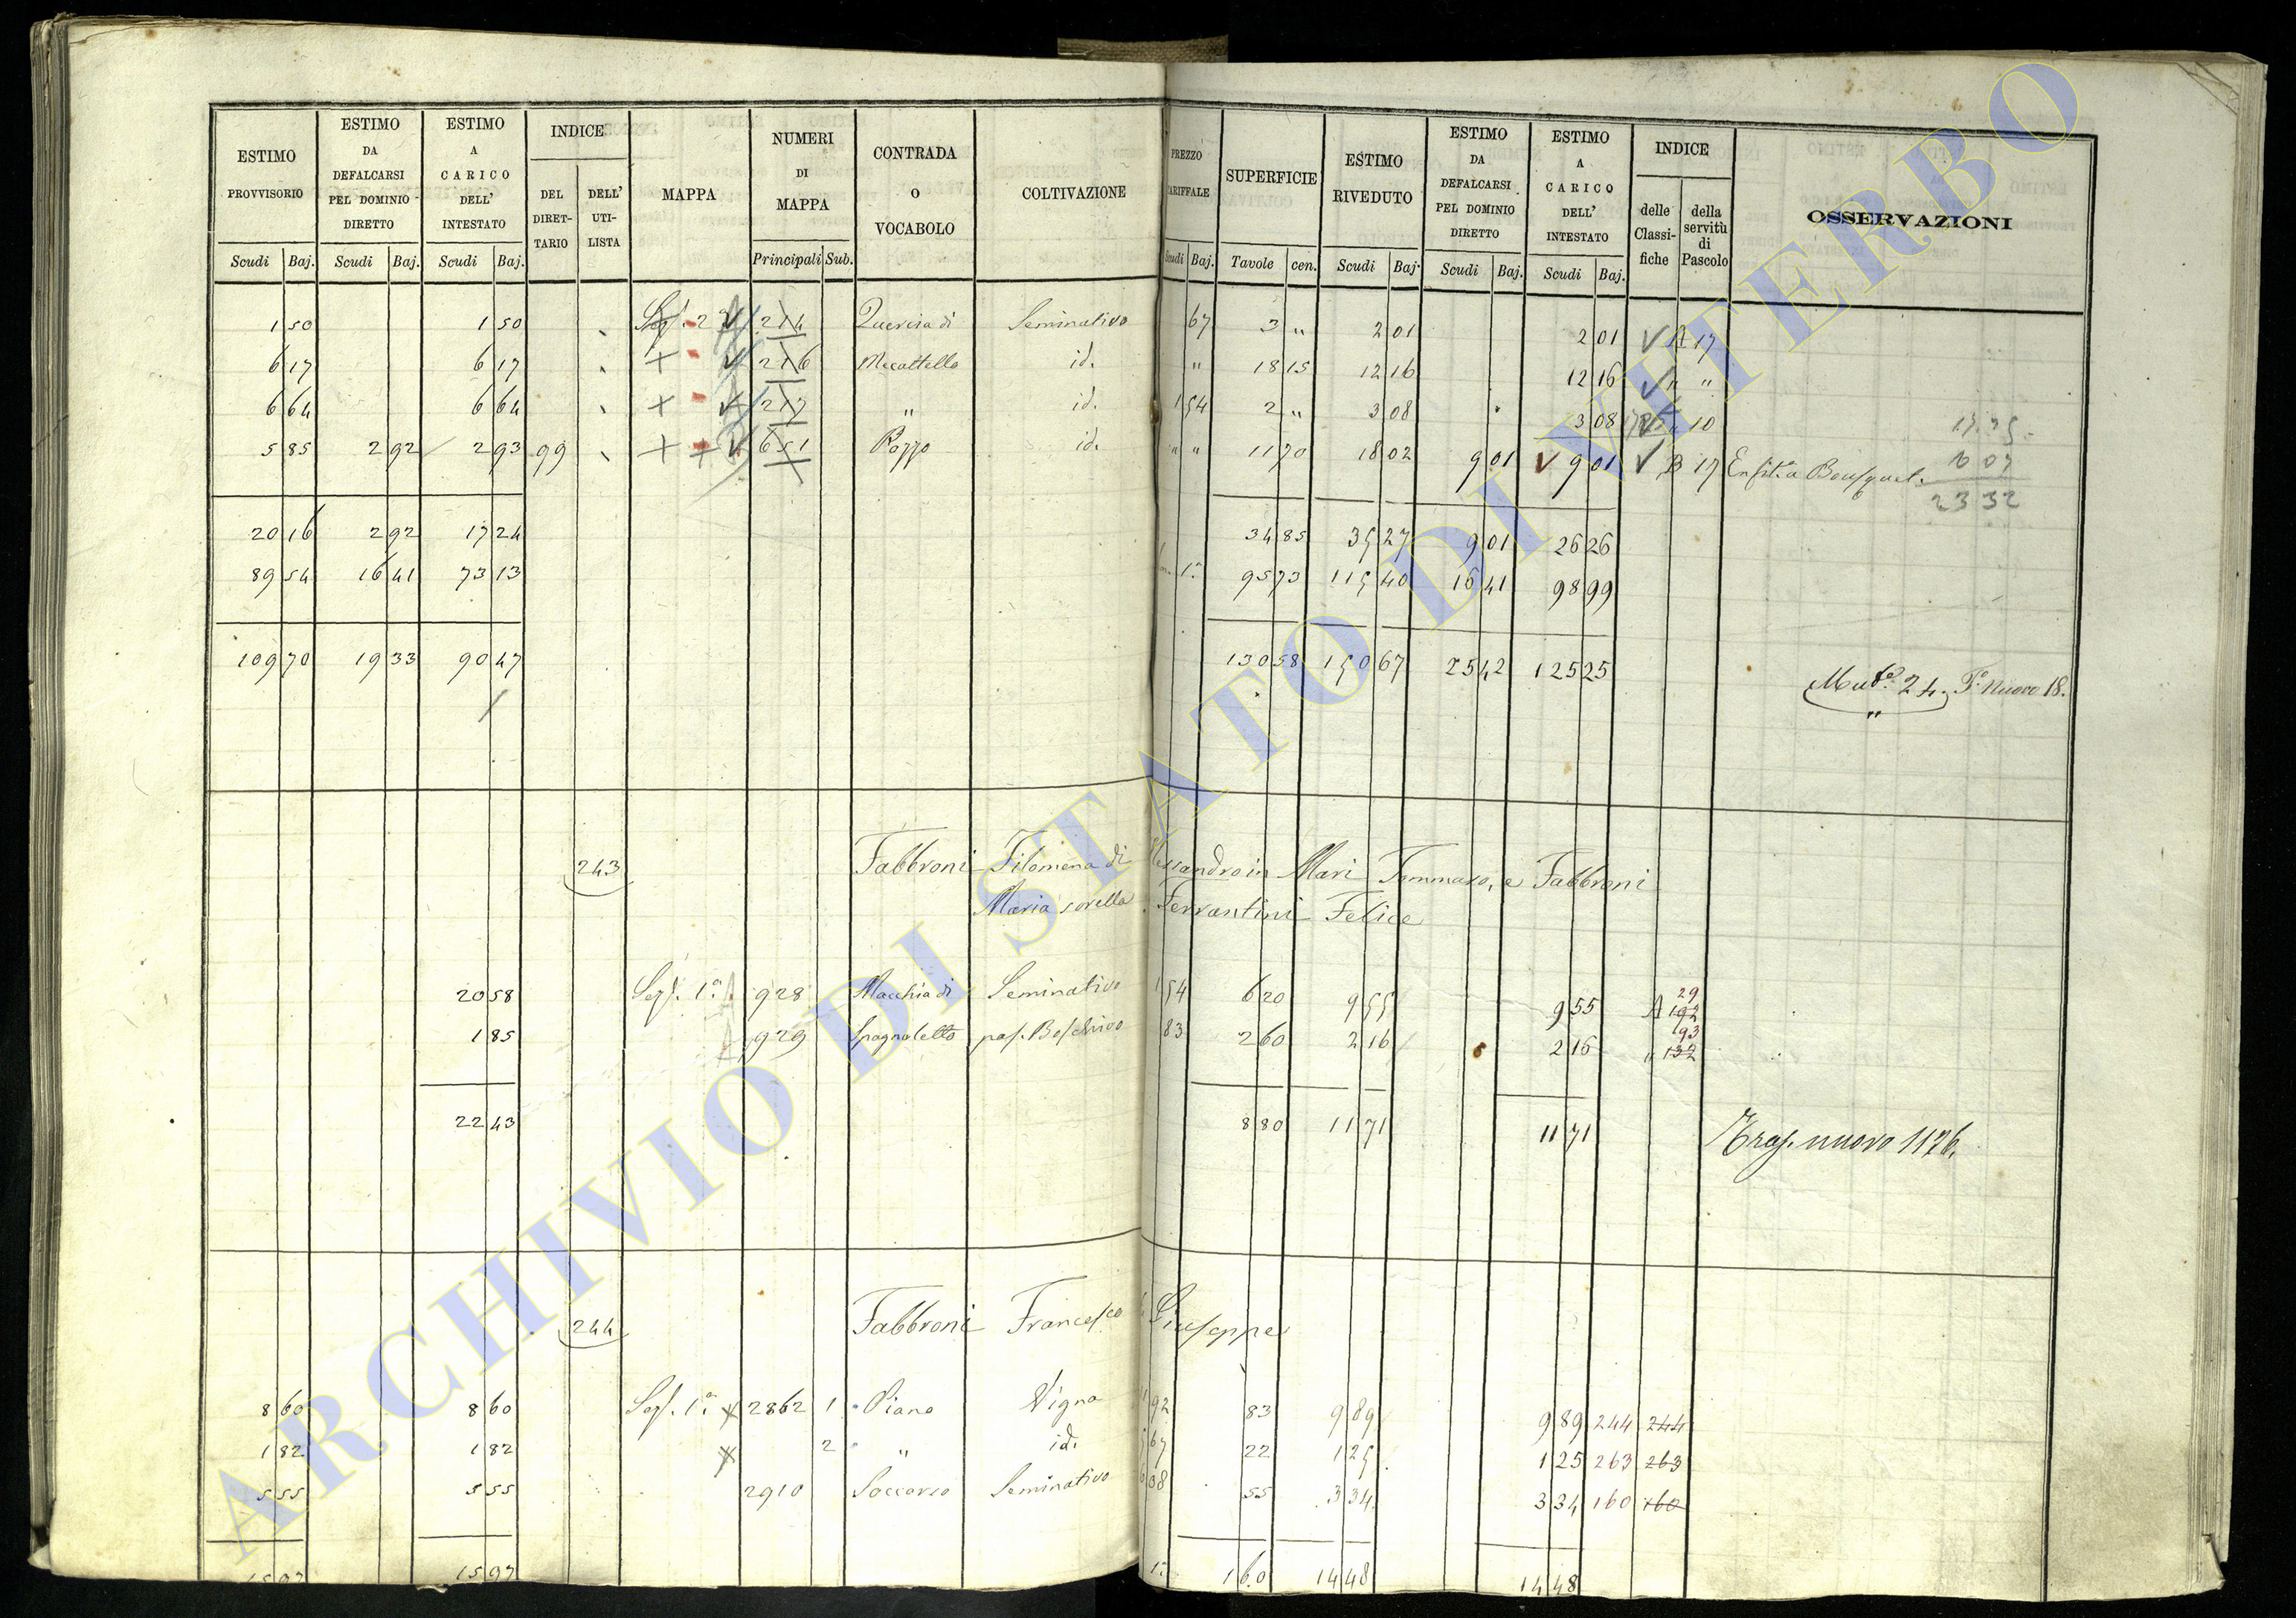 ESTIMO PROVVISORIO | ESTIMO DA DEFALCARSI PEL DOMINIO DIRETTO | ESTIMO A CARICO DELL' INTESTATO | INDICE | MAPPA | NUMERI DI MAPPA | CONTRADA O VOCABOLO | COLTIVAZIONE | PREZZO TARIFFALE | SUPERFICIE | ESTIMO RIVEDUTO | ESTIMO DA DEFALCARSI PEL DOMINIO DIRETTO | ESTIMO A CARICO DELL' INTESTATO | INDICE | OSSERVAZIONI
DEL DIRETTARIO | DELL' UTILISTA | delle Classifiche | della servitù di Pascolo
Scudi | Baj. | Scudi | Baj. | Scudi | Baj. | Principali | Sub. | Scudi | Baj. | Tavole | cen. | Scudi | Baj. | Scudi | Baj. | Scudi | Baj.
1 50 | 1 50 | Sez. 2 | 214 | Quercia di | Seminativo | 67 | 3 " | 2 01 | 2 01 | A 17
6 17 | 6 17 | 216 | Mecattello | id. | " | 18 15 | 12 16 | 12 16 | " "
6 64 | 6 64 | 217 | " | id. | 1 54 | 2 " | 3 08 | 3 08 | 10
5 85 | 2 92 | 2 93 | 99 | 651 | Pozzo | id. | " " | 11 70 | 18 02 | 9 01 | 9 01 | B 17
23 32
20 16 | 2 92 | 17 24 | 34 85 | 35 27 | 9 01 | 26 26
89 54 | 16 41 | 73 13 | 95 73 | 115 40 | 16 41 | 98 99
109 70 | 19 33 | 90 47 | 130 58 | 150 67 | 25 42 | 125 25
Nuovo 18.
243 | Fabbroni Filomena di Alessandro in Mari Tommaso, e Fabbroni
Maria sorella Ferrantini Felice
20 58 | Sez. 1ª | 928 | Macchia di | Seminativo | 1 54 | 6 20 | 9 55 | 9 55 | A 192 29
1 85 | 929 | Spagnoletto | pas. Boschivo | 83 | 2 60 | 2 16 | 2 16 | " 132 93
22 43 | 8 80 | 11 71 | 11 71 | Trasp. nuovo 1176.
244 | Fabbroni Francesco di Giuseppe
8 60 | 8 60 | Sez. 1ª | 2862 | 1 | Piano | Vigna | 92 | 83 | 9 89 | 9 89 | 244 | 244
1 82 | 1 82 | 2 | " | id. | 5 67 | 22 | 1 25 | 1 25 | 263 | 263
5 55 | 5 55 | 2910 | Soccorso | Seminativo | 6 08 | 55 | 3 34 | 3 34 | 160 | 160
15 97 | 15 97 | 1 60 | 14 48 | 14 48
ARCHIVIO DI STATO DI VITERBO